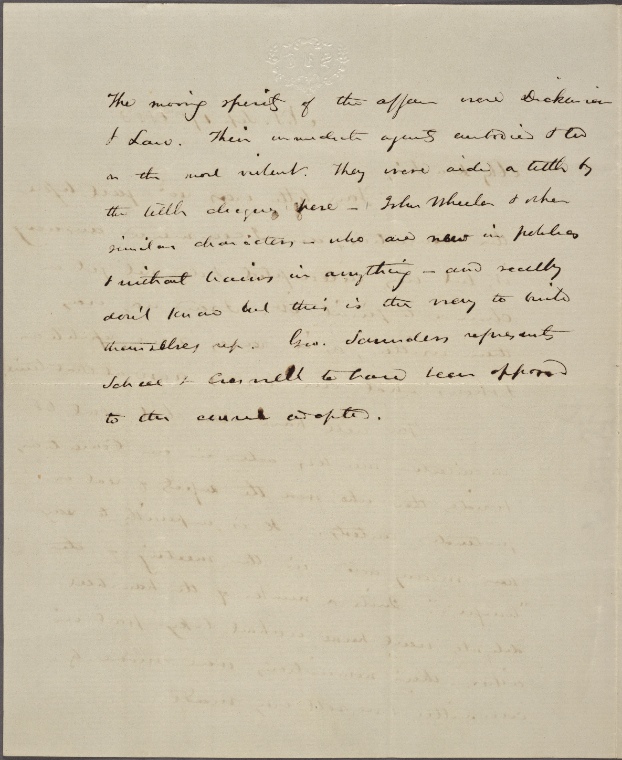 The moving spirits of the affair were Dickinson
& Law. Their immediate agents embodied & led
on the most violent. They were aided a little by
the little here – John Wheeler & other
similar characters – who are new in politics
& without brains in anything – and really
don't know but this is the way to build
themselves up. Geo. Saunders represents
Schell & Croswell to have been opposed
to the course adopted.